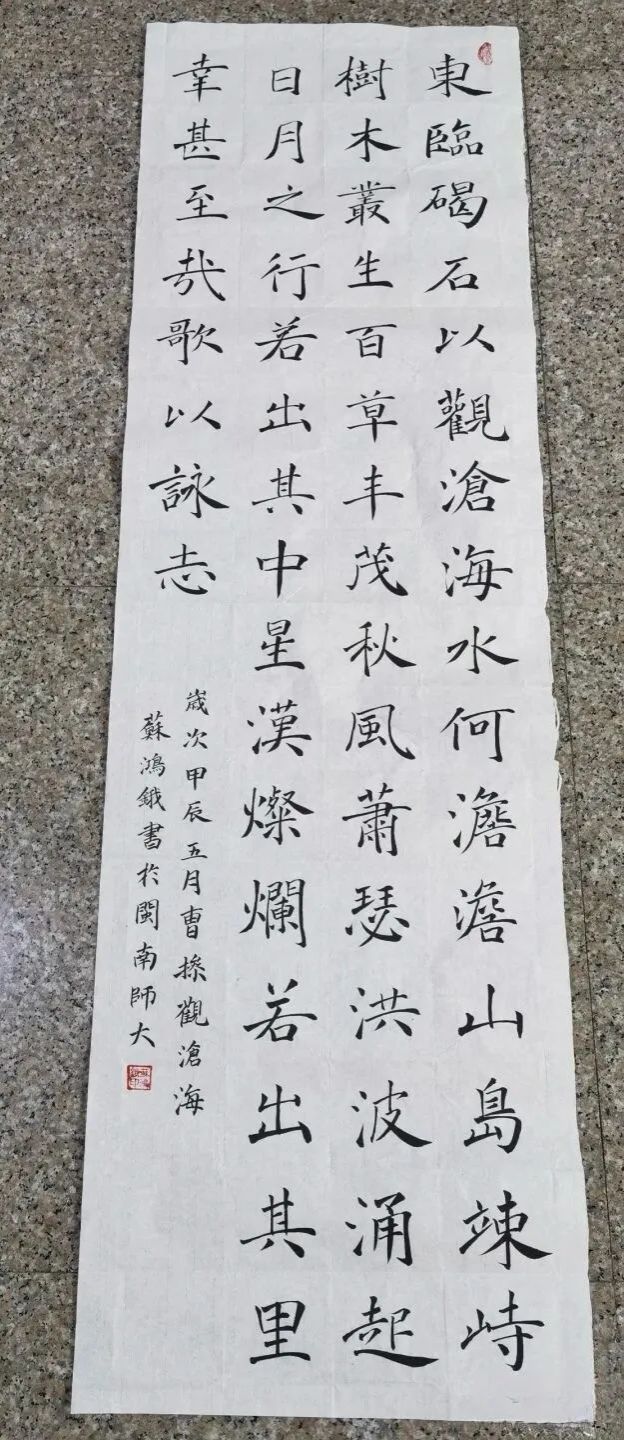 東臨碣石以觀滄海水何澹澹山島竦峙
樹木叢生百草丰茂秋風蕭瑟洪波涌起
日月之行若出其中星漢燦爛若出其里
幸甚至哉歌以詠志
歲次甲辰五月曹操觀滄海
蘇鴻鋨書於閩南師大